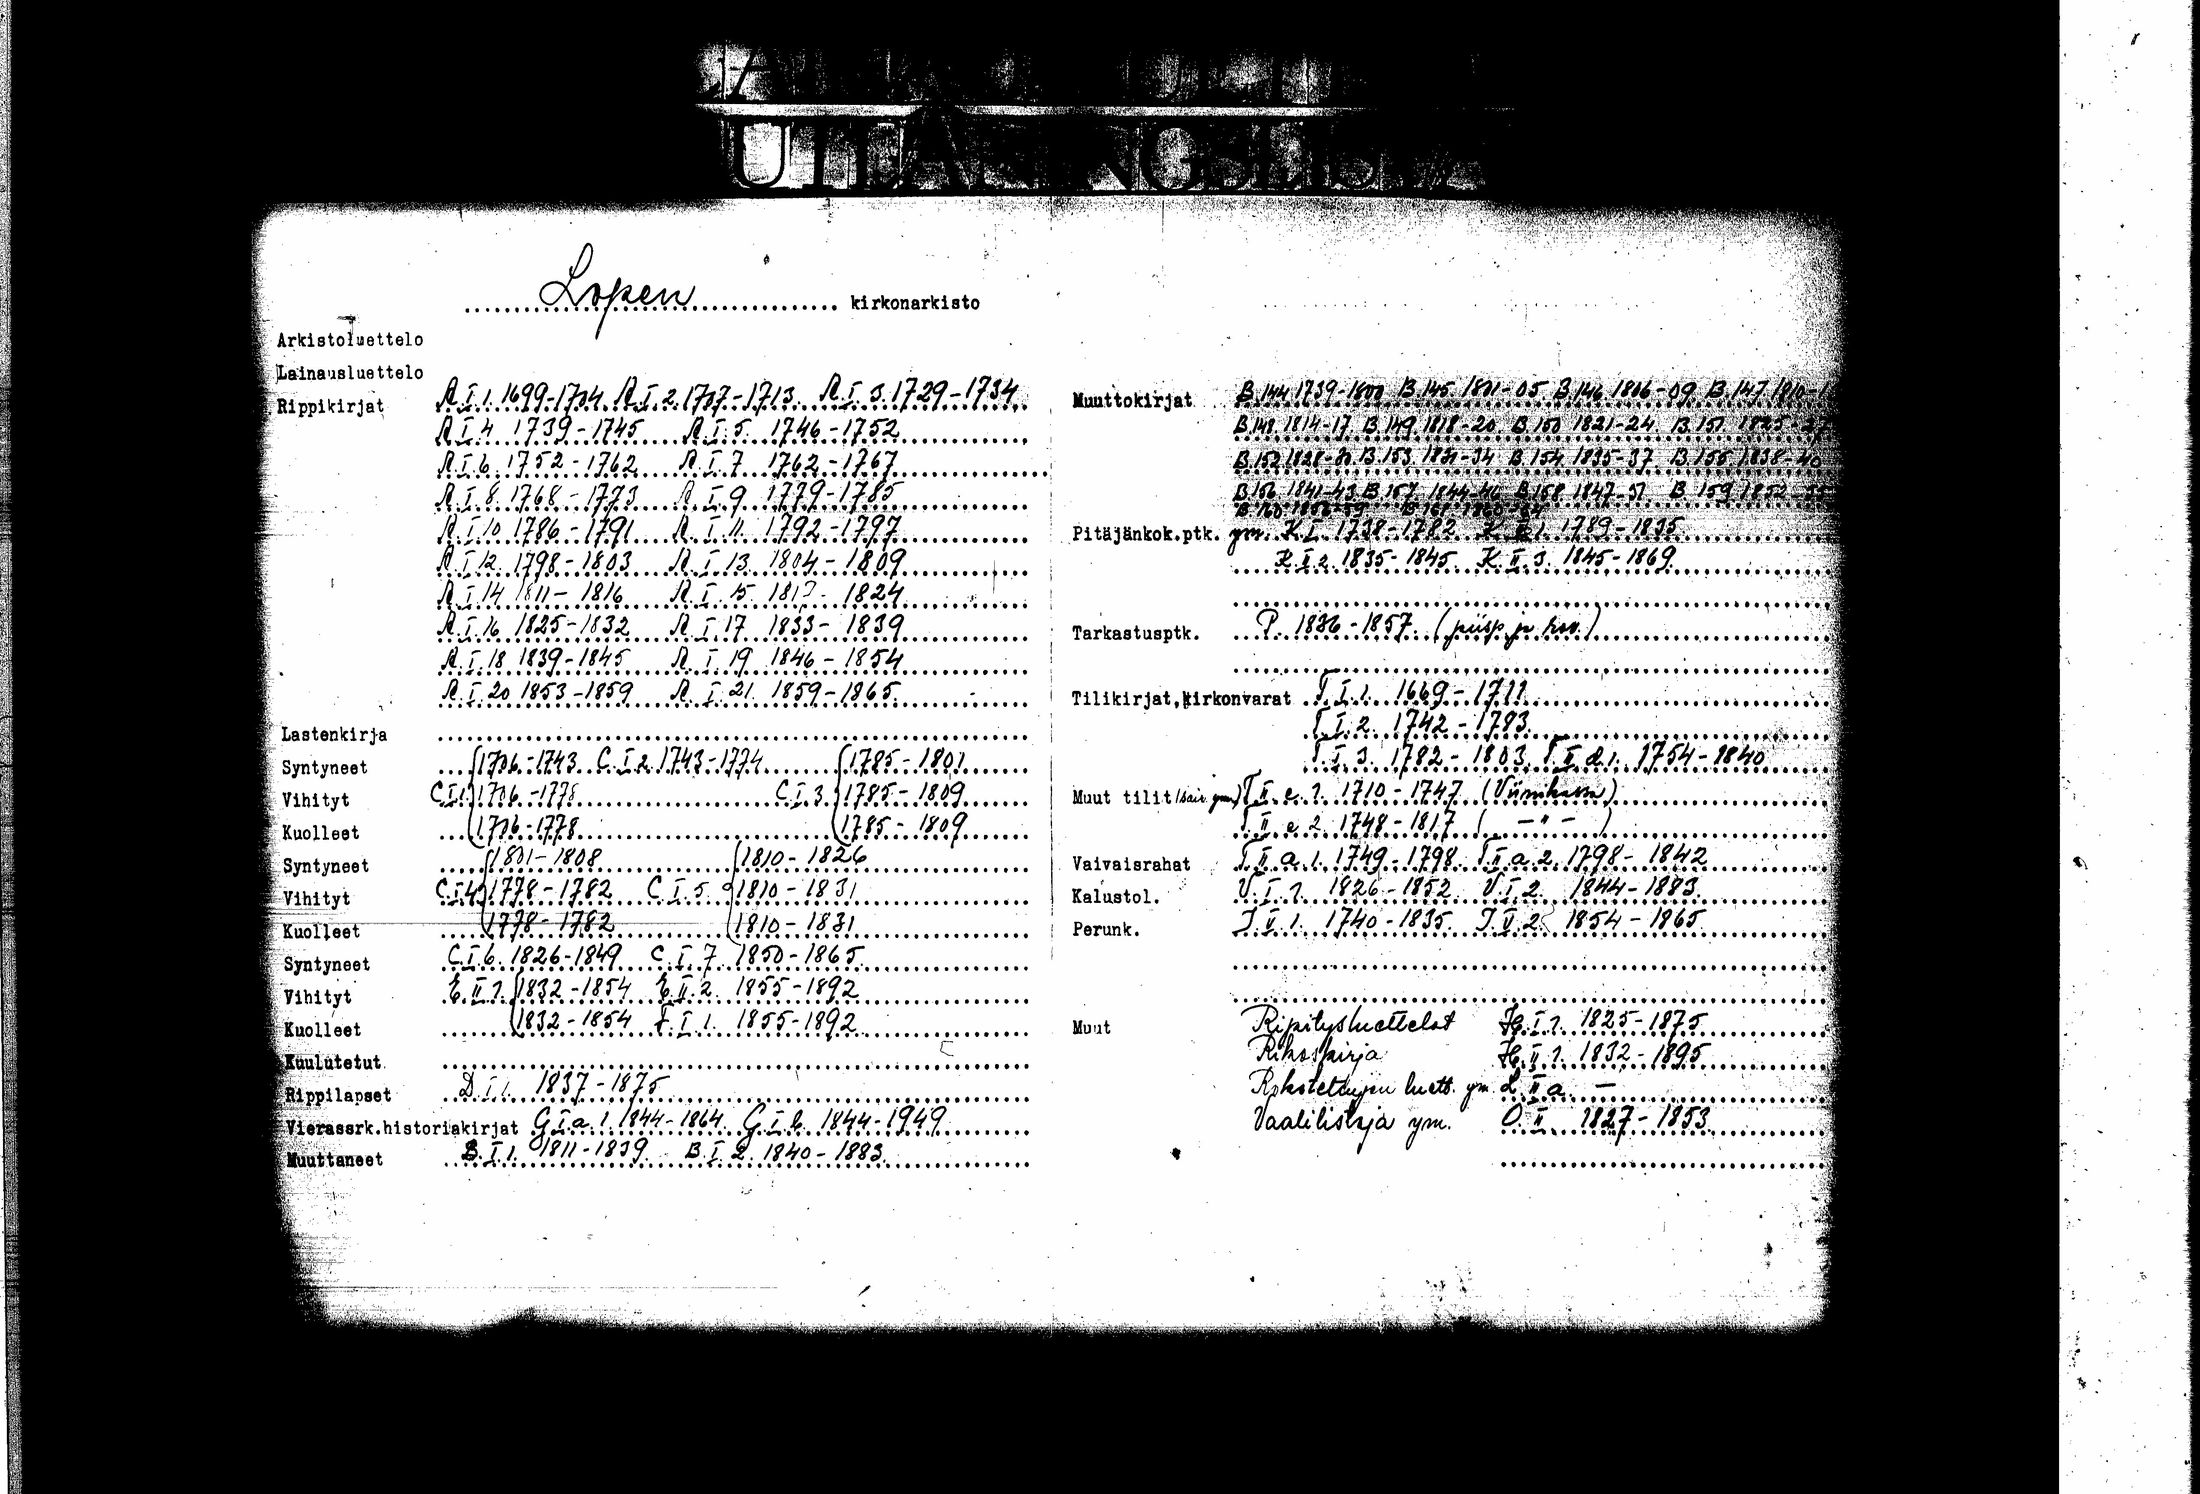 UTLÅNINGSLISTA
Lopen kirkonarkisto
Arkistoluettelo
Lainausluettelo
Rippikirjat A.I.1. 1699-1704 A.I.2. 1707-1713. A.I.3. 1729-1734
A.I.4. 1739-1745 A.I.5. 1746-1752
A.I.6. 1752-1762 A.I.7 1762-1767
A.I.8. 1768-1773 A.I.9. 1779-1785
A.I.10 1786-1791 A.I.11. 1792-1797
A.I.12. 1798-1803 A.I.13. 1804-1809
A.I.14 1811-1816 A.I.15. 1824
A.I.16 1825-1832 A.I.17 1833-1839
A.I.18 1839-1845 A.I.19. 1846-1854
A.I.20 1853-1859 A.I.21. 1859-1865.
Lastenkirja
Syntyneet 1706-1743 C.I.2. 1743-1774 1785-1801
Vihityt C.I.1. 1706-1778 C.I.3. 1785-1809
Kuolleet 1706-1778 1785-1809
Syntyneet 1801-1808 1810-1826
Vihityt C.I.4. 1778-1782 C.I.5. 1810-1831
Kuolleet 1778-1782 1810-1831
Syntyneet C.I.6. 1826-1849 C.I.7. 1850-1865.
Vihityt E.II.1. 1832-1854 E.II.2. 1855-1892
Kuolleet 1832-1854 F.I.1. 1855-1892
Kuulutetut
Rippilapset D.I.1. 1837-1875
Vierassrk.historiakirjat G.I.a.1. 1844-1864 G.I.b. 1844-1949
Muuttaneet B.I.1. 1811-1839. B.I.2. 1840-1883.
Muuttokirjat B.144 1739-1800 B.145 1801-05 B.146 1806-09 B.147 1810-
B.148. 1814-17 B.149. 1818-20 B.150 1821-24 B.151. 1825-27
B.152 1828- B.153. 1831-34 B.154. 1835-37 B.155. 1838-40
B.156 1841-43 B.157. 1844-46 B.158 1847-51 B.159 1852-55
B.160 B.161
Pitäjänkok.ptk. ym. K.I. 1738-1782 K.II.1. 1789-1835
K.II.2 1835-1845 K.II.3. 1845-1869.
Tarkastusptk. P. 1836-1857 (piisp. ja rov.)
Tilikirjat, kirkonvarat T.I.1. 1669-1711
T.I.2. 1742-1783.
T.I.3. 1782-1803. T.II.d.1. 1754-1840
Muut tilit (sair. ym.) T.II.e.1. 1710-1747 (Viinikassa)
T.II.e.2. 1748-1817 ( -"- )
Vaivaisrahat T.II.a.1. 1749-1798. T.II.a.2. 1798-1842
Kalustol. U.I.1. 1826-1852 U.I.2. 1844-1883.
Perunk. I.II.1. 1740-1835. I.II.2. 1854-1865.
Muut Ripitysluettelot H.I.1. 1825-1875.
Rikoskirja H.II.1. 1832-1895.
Rokotettujen luett. ym. L.II.a. -
Vaalilistoja ym. O.II. 1827-1853.